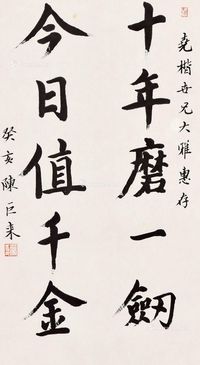 堯楷世兄大雅惠存
十年磨一劒
今日值千金
癸亥陳巨來